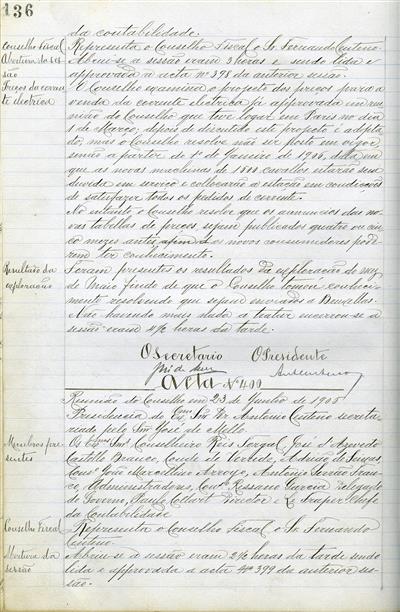 136
da contabilidade.
Conselho Fiscal
Representa o Conselho Fiscal o Sr. Fernando Centeno.
Abertura da ses
são
Abriu-se a sessão eram 3 horas e sendo lida e
approvada a acta nº 398 da anterior sessão.
Preços da corren
te electrica
O Conselho examina o projecto dos preços para a
venda da corrente electrica já approvada em reu
nião do Conselho que teve logar em Paris no dia
1 de Março, depois de discutido este projecto é adopta
do, mas o Conselho resolve não ser posto em vigor
senão a partir de 1º de Janeiro de 1906, data em
que as novas machinas de cavallos estarão sem
duvida em serviço e collocarão a estação em condicções
de satisfazer todos os pedidos de corrente.
No entinto o Conselho resolve que os annuncios das no
vas tabellas de preços sejam publicados quatro ou cin
co mezes antes afim os novos consumidores pode
rem ter conhecimento.
Resultado da
exploração
Foram presentes os resultados da exploração do mez
de Maio findo de que o Conselho tomou conheci
mento resolvendo que sejam enviados a Bruxellas.
Não havendo mais nada a tratar encerrou-se a
sessão eram 4½ horas da tarde.
O Secretario O Presidente
José de Mello
Acta Nº 400
Reunião do Conselho em 23 de Junho de 1905
Presidencia do Exmo Snr Dr Antonio Centeno secreta
riado pelo Snr José de Mello.
Membros pre
sentes
Os Exmos Snrs Conselheiro Reis Torgal, José d'Azevedo
Castello Branco, Conde de Verride, Eduardo de
Consº João Marcellino Arroyo, Antonio Serrão Fran
co, Administradores, Consº Rossano Garcia Delegado
do Governo, Paulo Collart Director e L. Fraper Chefe
da Contabilidade
Conselho Fiscal
Representa o Conselho Fiscal o Sr. Fernando
Centeno.
Abertura da
sessão
Abriu-se a sessão eram 2½ horas da tarde sendo
lida e approvada a acta nº 399 da anterior ses-
são.